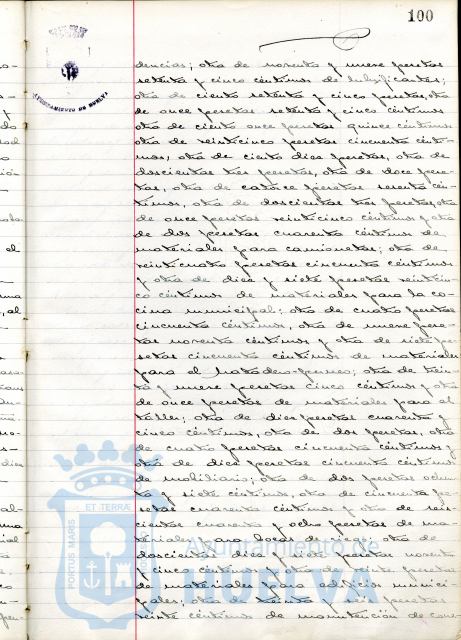 100
AYUNTAMIENTO DE HUELVA
dencias; otra de noventa y nueve pesetas
setenta y cinco céntimos de lubrificantes;
otra de ciento setenta y cinco pesetas, otra
de once pesetas setenta y cinco céntimos
otra de ciento once pesetas quince céntimos
otra de veinticinco pesetas cincuenta cénti-
mos, otra de ciento diez pesetas, otra de
doscientas tres pesetas, otra de doce pese-
tas, otra de catorce pesetas sesenta cén-
timos, otra de doscientas tres pesetas, otra
de once pesetas veinticinco céntimos y otra
de dos pesetas cuarenta céntimos de
materiales para camionetas; otra de
veinticuatro pesetas cincuenta céntimos
y otra de diez y siete pesetas veinticin-
co céntimos de materiales para la co-
cina municipal; otra de cuatro pesetas
cincuenta céntimos, otra de nueve pese-
tas noventa céntimos y otra de siete pe-
setas cincuenta céntimos de materiales
para el Matadero-; otra de trein-
ta y nueve pesetas cinco céntimos y otra
de once pesetas de materiales para el
taller; otra de diez pesetas cuarenta y
cinco céntimos, otra de dos pesetas, otra
de cuatro pesetas cincuenta céntimos y
otra de doce pesetas cincuenta céntimos
de mobiliario; otra de dos pesetas ochen-
ta y siete céntimos, otra de cincuenta pe-
setas cuarenta céntimos y otra de seis-
cientas cuarenta y ocho pesetas de ma-
teriales para bocas de riego; otra de
doscientas diez y siete pesetas noventa
y cinco céntimos y otra de siete pesetas
de materiales para edificios munici-
pales; otra de treinta y seis pesetas
veinte céntimos de manutención de
PORTUS MARIS ET TERRÆ
Ayuntamiento de
HUELVA